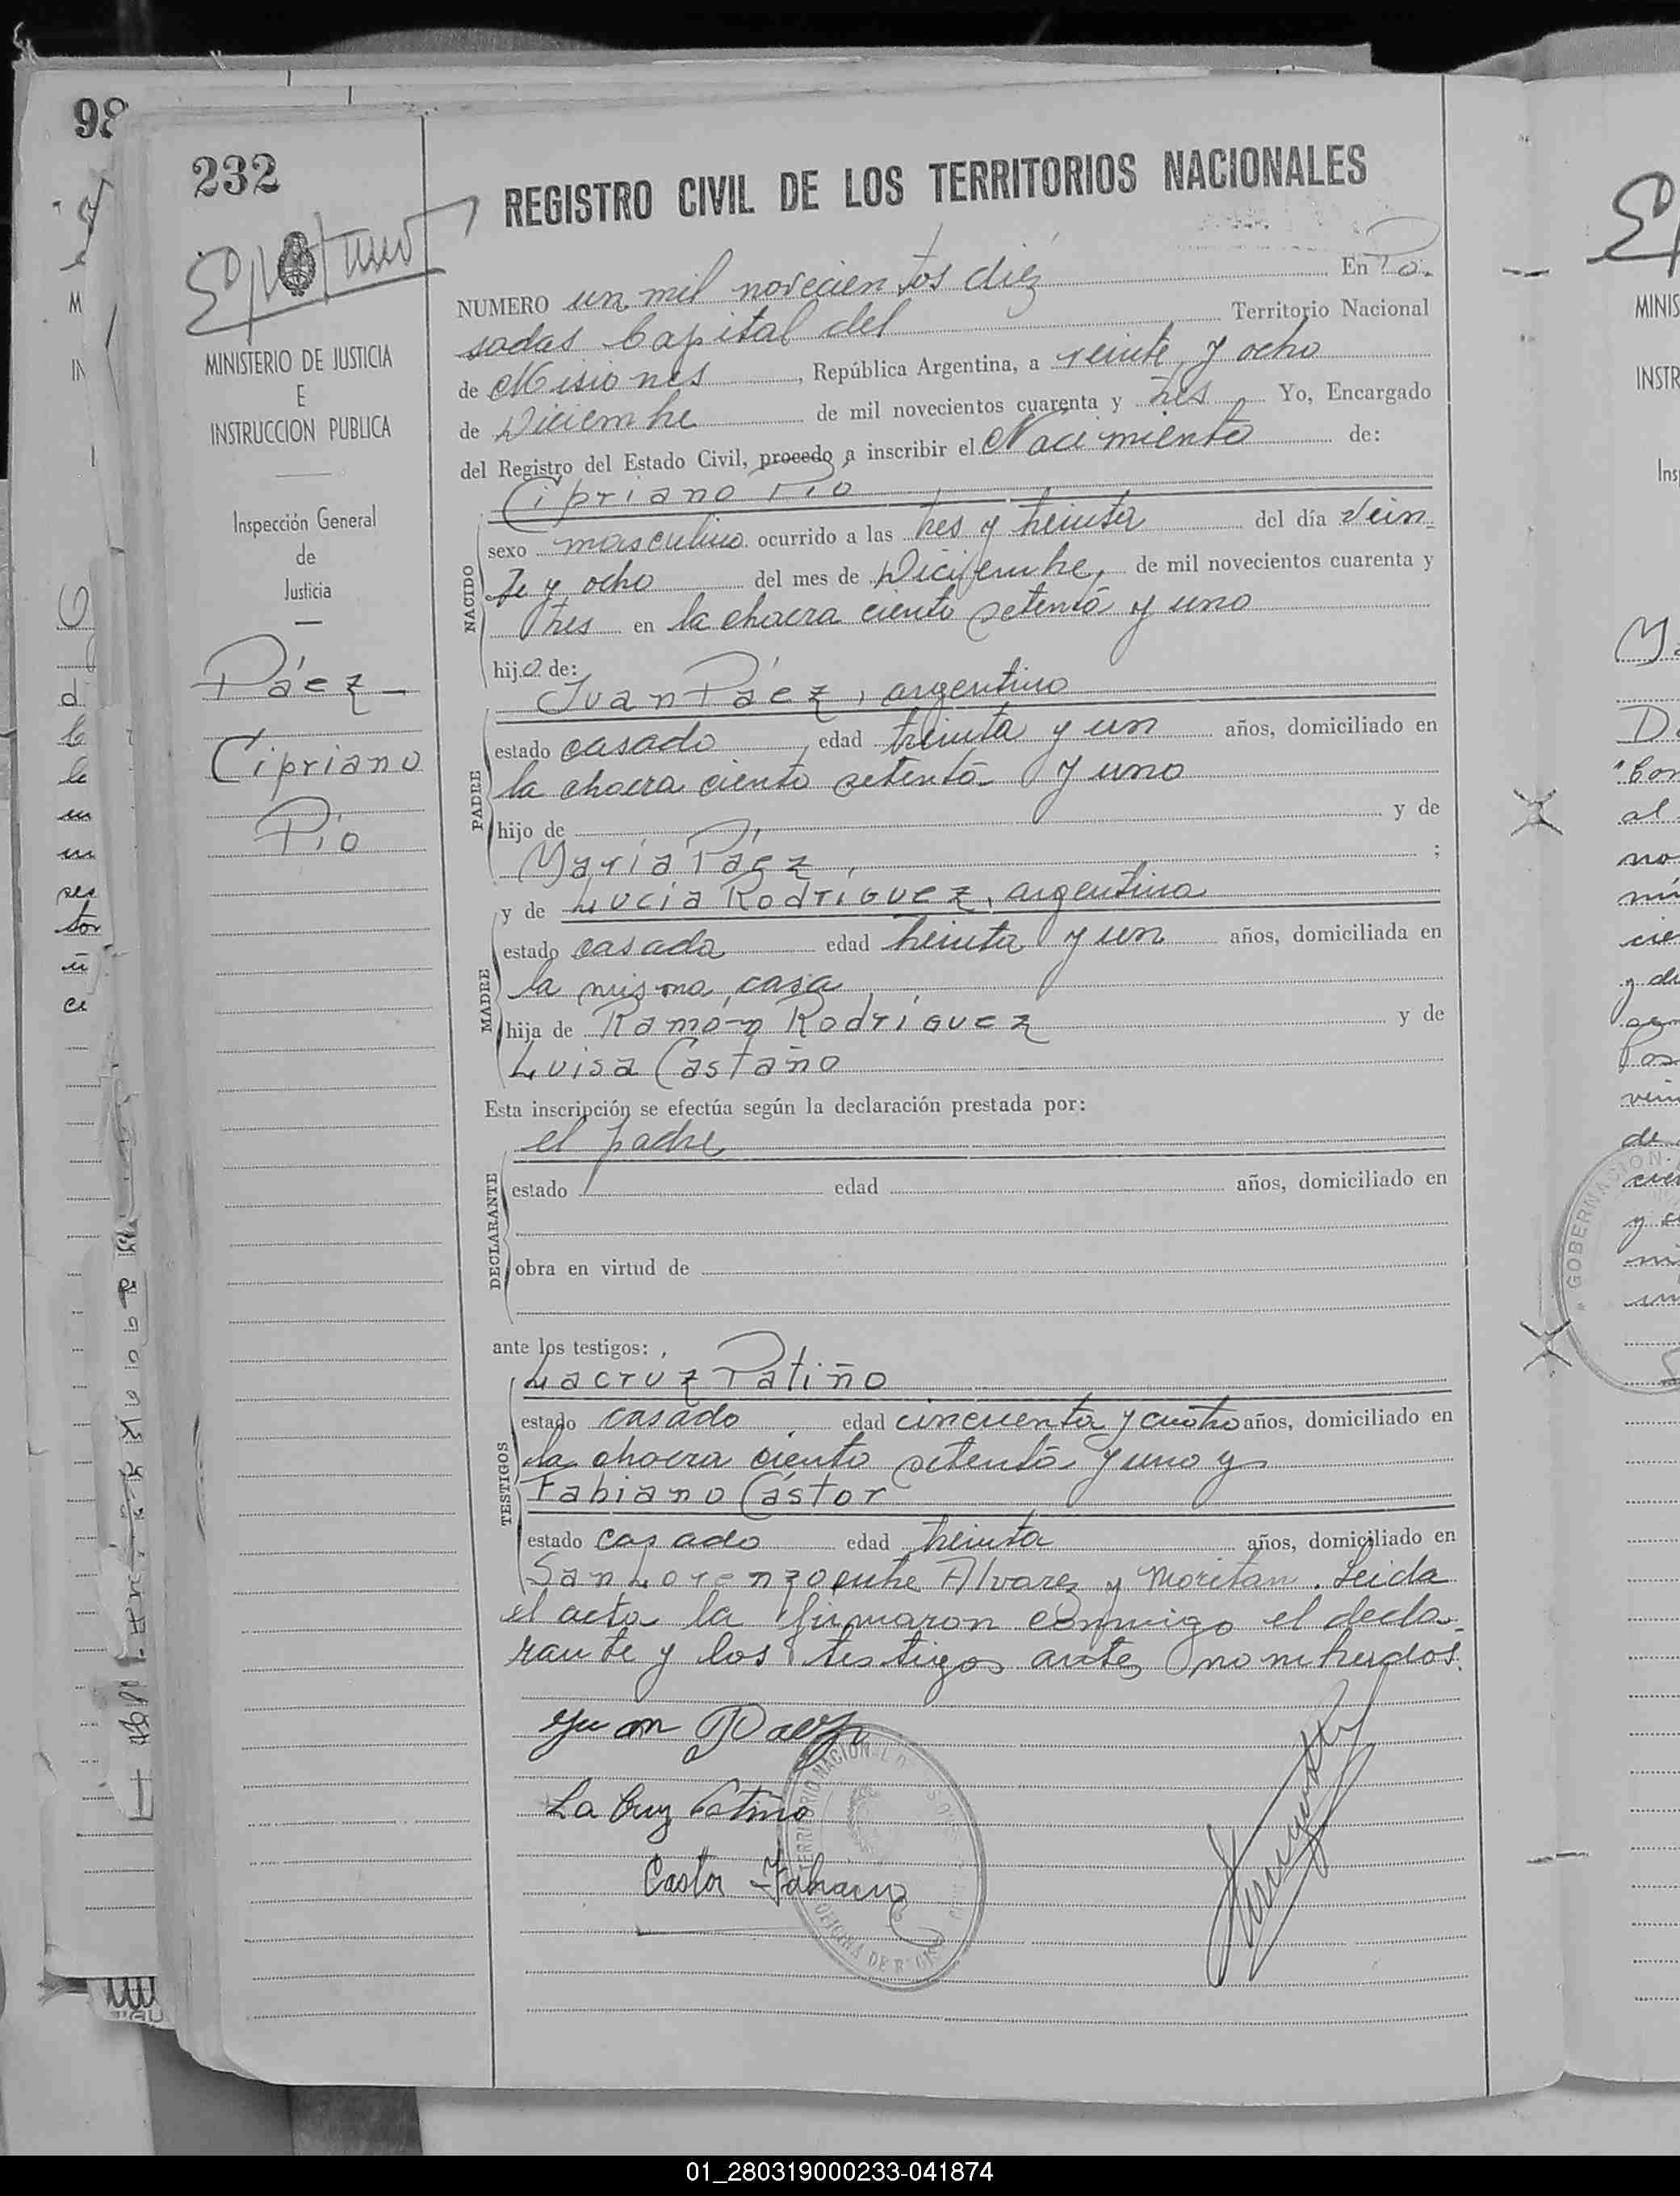 98
232
REGISTRO CIVIL DE LOS TERRITORIOS NACIONALES
NUMERO un mil novecientos diéz En Po-
sadas Capital del Territorio Nacional
de Misiones, República Argentina, a veinte y ocho
de Diciembre de mil novecientos cuarenta y tres Yo, Encargado
del Registro del Estado Civil, procedo a inscribir el Nacimiento de:
Cipriano Pío
sexo masculino ocurrido a las tres y treinta del día vein-
te y ocho del mes de Diciembre, de mil novecientos cuarenta y
tres en la chacra ciento setenta y uno
hijo de:
Juan Páez, argentino
estado casado, edad treinta y un años, domiciliado en
la chacra ciento setenta y uno
hijo de y de
María Páez ;
y de Lucía Rodríguez, argentina
estado casada edad treinta y un años, domiciliada en
la misma casa
hija de Ramón Rodríguez y de
Luisa Castaño
Esta inscripción se efectúa según la declaración prestada por:
el padre
estado edad años, domiciliado en
obra en virtud de
ante los testigos:
Lacrúz Patiño
estado casado edad cincuenta y cuatro años, domiciliado en
la chacra ciento setenta y uno y
Fabiano Cástor
estado casado edad treinta años, domiciliado en
San Lorenzo entre Alvarez y Moritan. Leida
el acta la firmaron conmigo el decla-
rante y los testigos antes nombrados.
Juan Paez
La Cruz Patiño
Castor Fabiano
MINISTERIO DE JUSTICIA
E
INSTRUCCION PUBLICA
Inspección General
de
Justicia
Páez
Cipriano
Pío
NACIDO
PADRE
MADRE
DECLARANTE
TESTIGOS
GOBERNACION
01_280319000233-041874